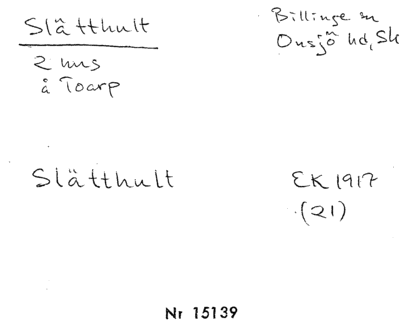 Slätthult
Billinge sn
Onsjö hd, Sk
2 hus
å Toarp
Slätthult
EK 1917
(21)
Nr 15139